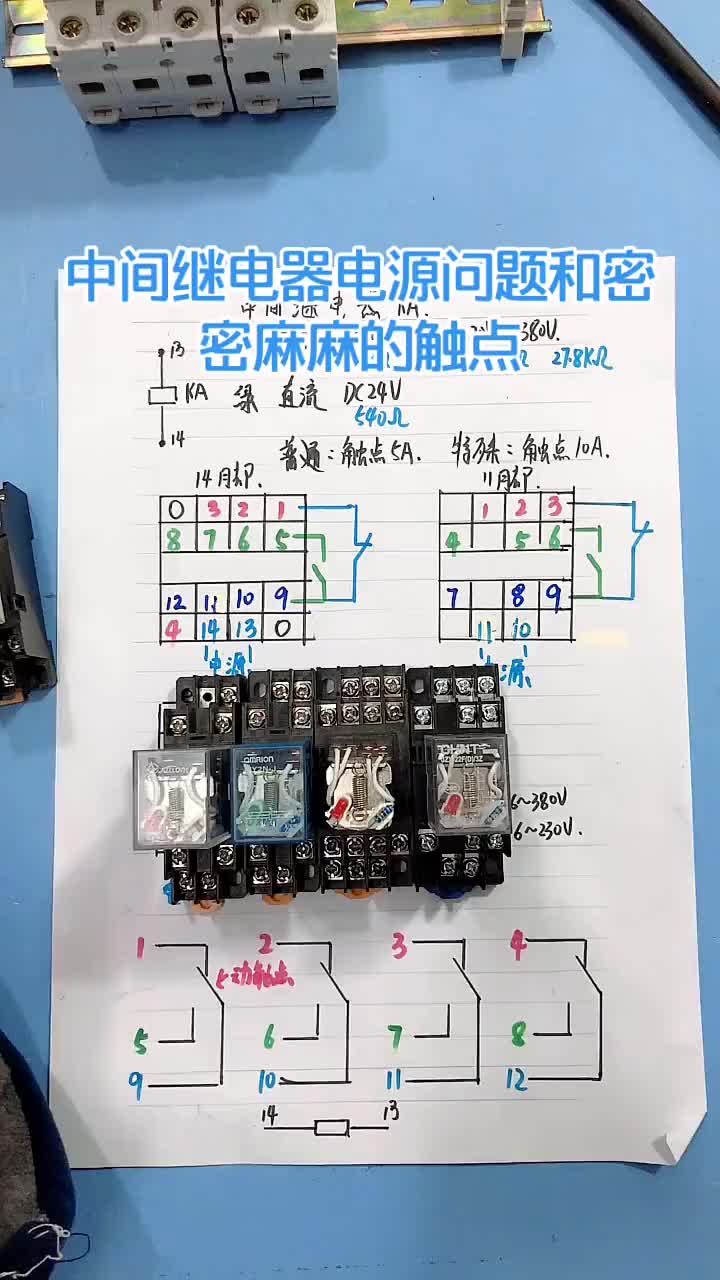 中间继电器电源问题和密
密麻麻的触点
380V.
27.8KΩ
13
KA 线 直流 DC24V
540Ω
14
普通：触点5A. 特殊：触点10A.
14月却. 11月却.
0 3 2 1
1 2 3
8 7 6 5
4 5 6
12 11 10 9
7 8 9
4 14 13 0
11 10
电源
源
OMRON
CHNT
6~380V
6~230V.
1 2 3 4
动触点
5 6 7 8
9 10 11 12
14 13